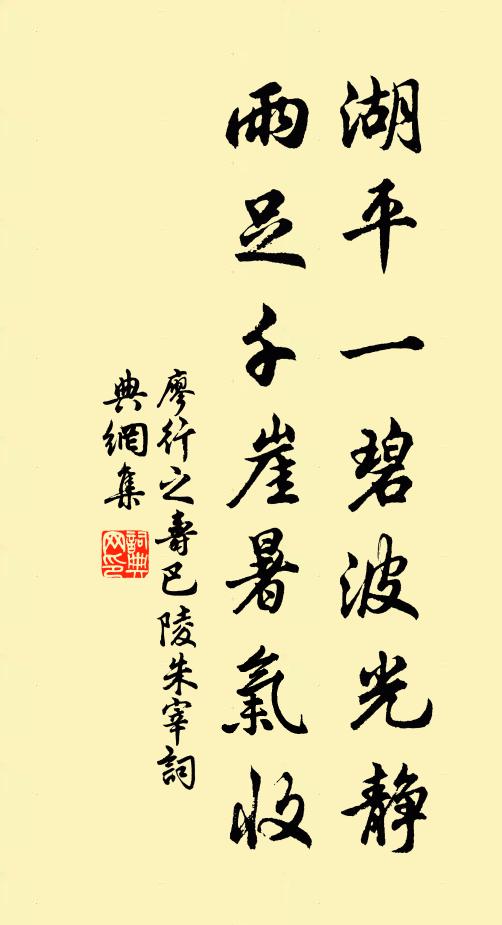 湖平一碧波光静
雨足千崖暑氣收
廖行之壽巴陵朱宰詞
典網集
詞典
网印